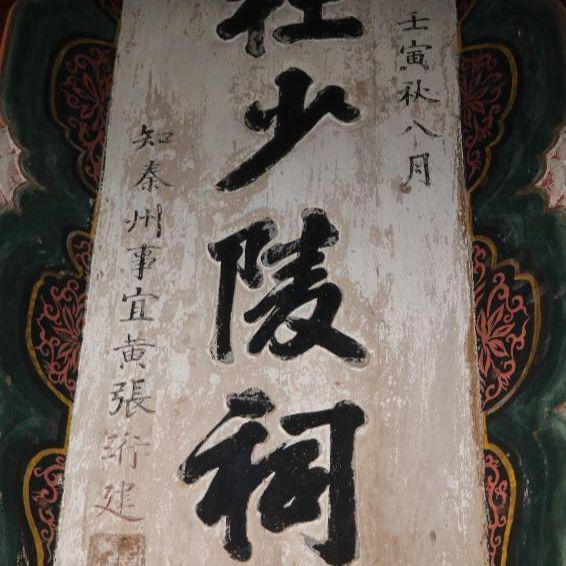 壬寅秋八月
杜少陵祠
知秦州事宜黄張珩建